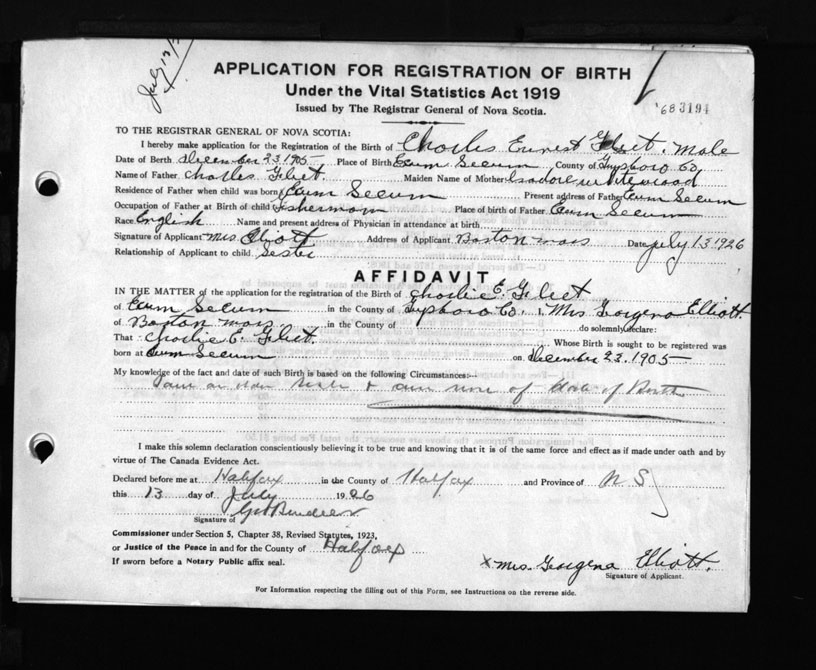 July 13/
APPLICATION FOR REGISTRATION OF BIRTH
Under the Vital Statistics Act 1919
Issued by The Registrar General of Nova Scotia.
'68 3194
TO THE REGISTRAR GENERAL OF NOVA SCOTIA:
I hereby make application for the Registration of the Birth of Charles Ernest . Male
Date of Birth December 23 1905 Place of Birth Ecum Secum County of Guysboro Co,
Name of Father Charles Maiden Name of Mother
Residence of Father when child was born Ecum Secum Present address of Father Ecum Secum
Occupation of Father at Birth of child Fisherman Place of birth of Father Ecum Secum
Race English Name and present address of Physician in attendance at birth
Signature of Applicant Mrs Elliott Address of Applicant Boston Mass Date July 13 1926
Relationship of Applicant to child Sester
AFFIDAVIT
IN THE MATTER of the application for the registration of the Birth of Charlie E.
of Ecum Secum in the County of Guysboro Co. I, Mrs Georgena Elliott.
of Boston Mass in the County of do solemnly declare:
That Charlie E. Whose Birth is sought to be registered was
born at Ecum Secum on December 23. 1905
My knowledge of the fact and date of such Birth is based on the following Circumstances:—
I am an & am sure of date of Birth
I make this solemn declaration conscientiously believing it to be true and knowing that it is of the same force and effect as if made under oath and by
virtue of The Canada Evidence Act.
Declared before me at Halifax in the County of Halifax and Province of N S
this 13 day of July 1926
Signature of
Commissioner under Section 5, Chapter 38, Revised Statutes, 1923,
or Justice of the Peace in and for the County of Halifax
If sworn before a Notary Public affix seal.
x Mrs. Georgena Elliott.
Signature of Applicant.
For Information respecting the filling out of this Form, see Instructions on the reverse side.